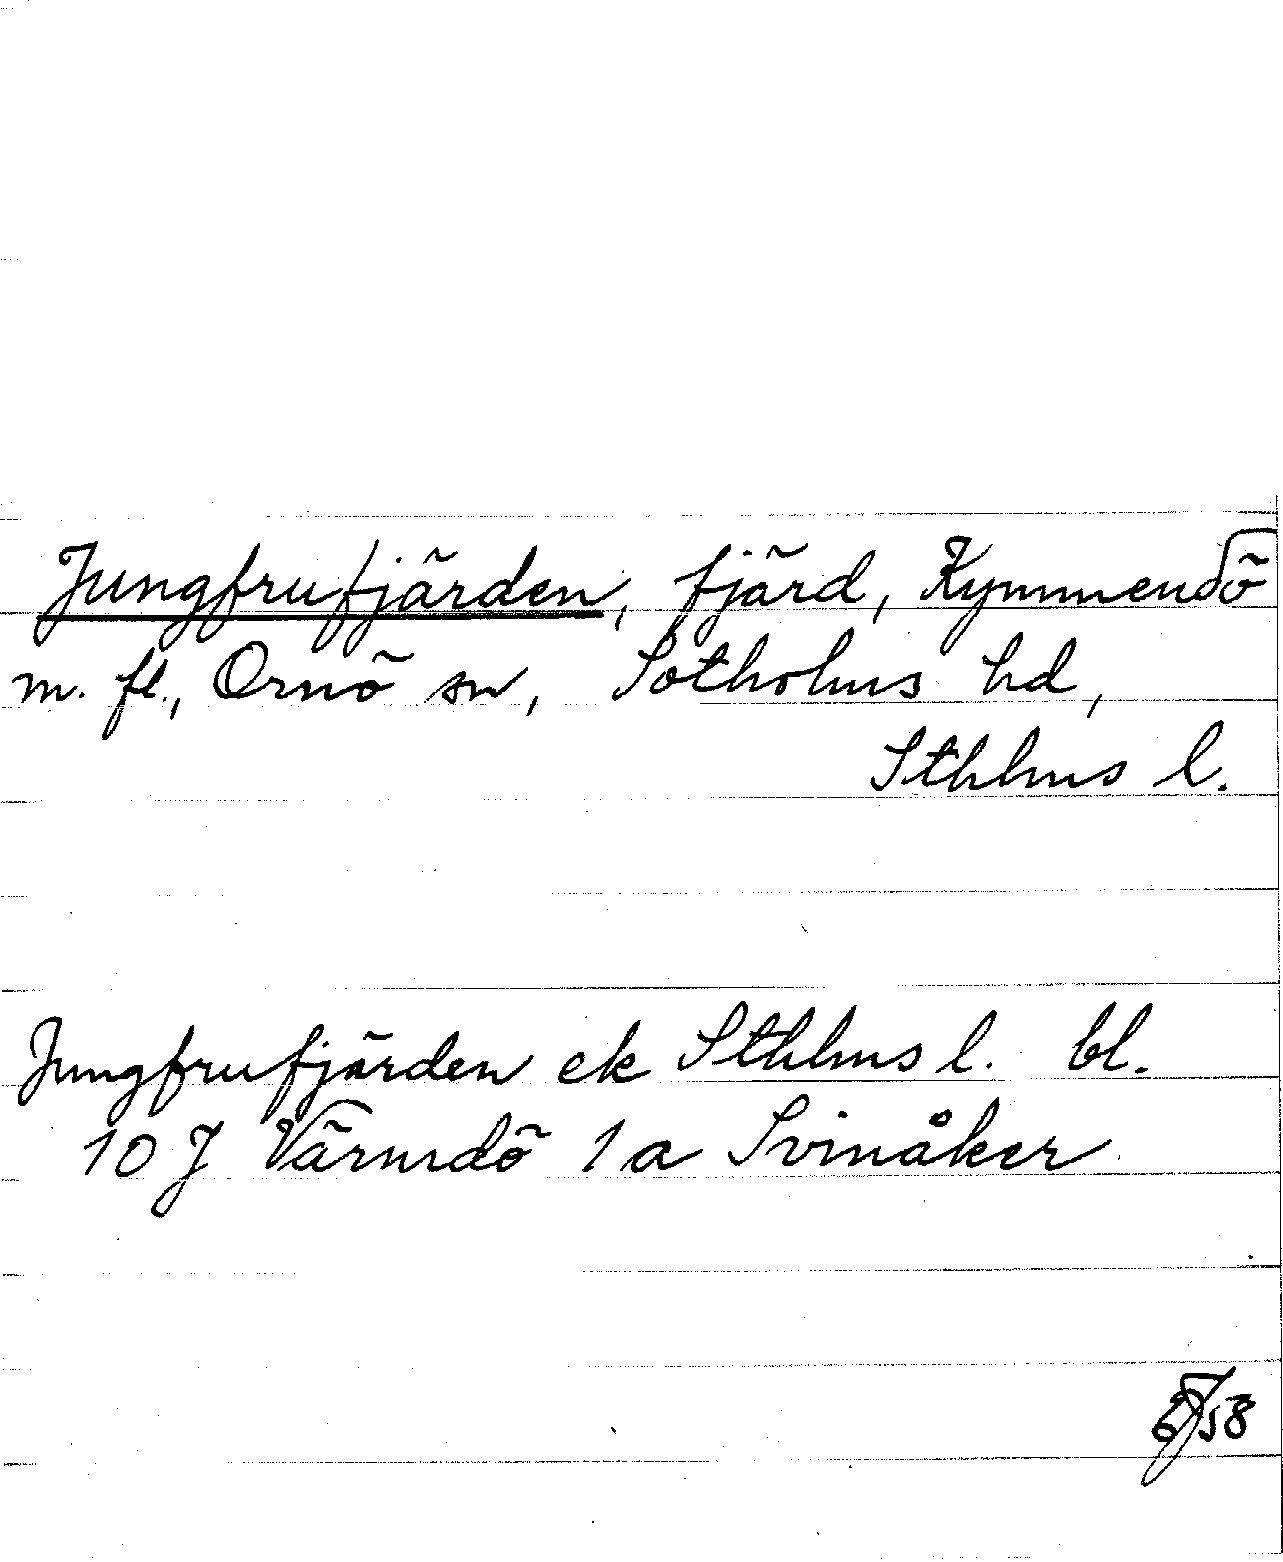 Jungfrufjärden, fjärd, Kymmendö
m. fl., Ornö sn, Sotholms hd,
Sthlms l.
Jungfrufjärden ek Sthlms l. bl.
10 J Värmdö 1a Svinåker
58